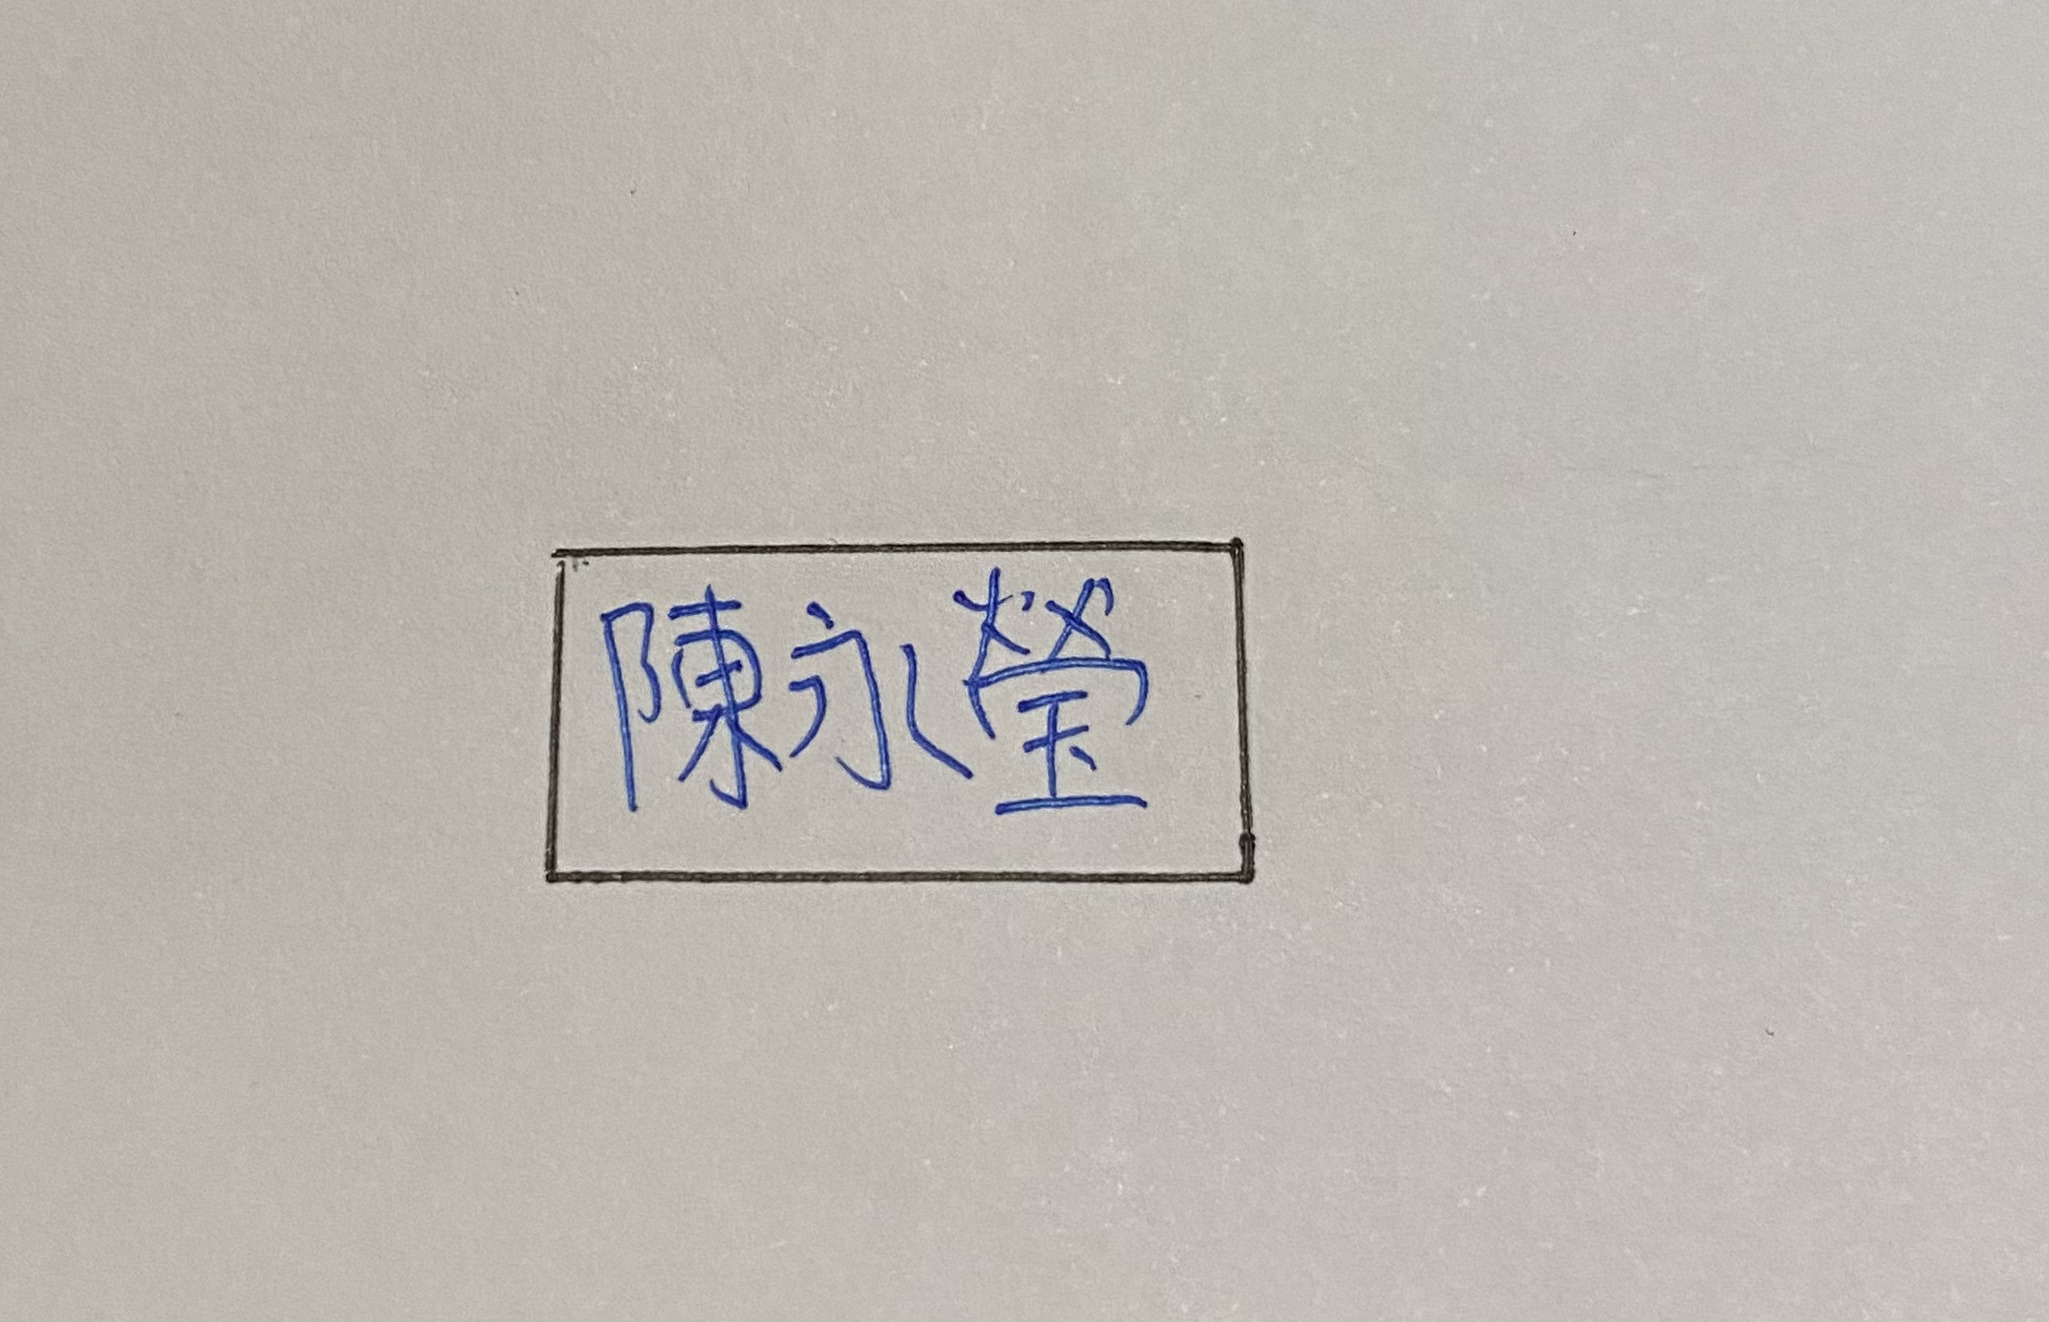 陳永瑩